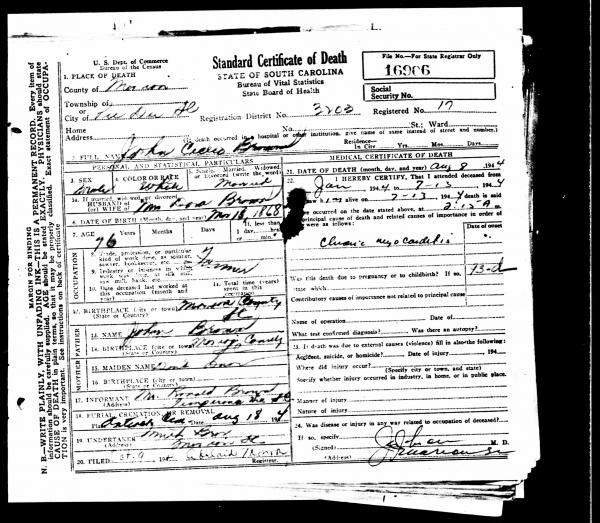 U. S. Dept. of Commerce
Bureau of the Census
Standard Certificate of Death
STATE OF SOUTH CAROLINA
Bureau of Vital Statistics
State Board of Health
File No.—For State Registrar Only
16906
Social
Security No.
1. PLACE OF DEATH
County of Marion
Township of
or
City of
Registration District No. 3203
Registered No. 17
Home
Address
No.
St.; Ward
(If death occurred in a hospital or other institution, give name of same instead of street and number.)
2. FULL NAME John Cicero Brown
Residence—
In City Yrs. Mos. Days
PERSONAL AND STATISTICAL PARTICULARS
3. SEX
Male
4. COLOR OR RACE
White
5. Single, Married, Widowed, or Divorced (write the word)
Married
5a. If married, widowed or divorced
HUSBAND of
(or) WIFE of Mrs. Dora Brown
6. DATE OF BIRTH (Month, day, and year) Mar 18, 1868
7. AGE 76 Years Months Days
If less than
1 day hrs.
or min.
OCCUPATION
8. Trade, profession, or particular kind of work done, as spinner, sawyer, bookkeeper, etc. Farmer
9. Industry or business in which work was done, as silk mill, saw mill, bank, etc.
10. Date deceased last worked at this occupation (month and year)
11. Total time (years) spent in this occupation
12. BIRTHPLACE (city or town) Marion County
FATHER
13. NAME John Brown
14. BIRTHPLACE (city or town) Marion County
MOTHER
15. MAIDEN NAME Dont Know
16. BIRTHPLACE (city or town)
(State or county)
17. INFORMANT
(Address)
18. BURIAL CREMATION OR REMOVAL
Place Date Aug 18 194
19. UNDERTAKER Smith
(Address) Marion SC
20. FILED 194
Registrar.
MEDICAL CERTIFICATE OF DEATH
21. DATE OF DEATH (month, day, and year) Aug 8 1944
22. I HEREBY CERTIFY, That I attended deceased from
Jan 1944, to 7-13 1944
7-13 1944 death is said
occurred on the date stated above, at
principal cause of death and related causes of importance in order of
were as follows:
Date of onset
Chronic myocarditis
Was this death due to pregnancy or to childbirth? If so,
state which
93-d
Contributory causes of importance not related to principal cause
Name of operation Date of
What test confirmed diagnosis? Was there an autopsy?
23. If death was due to external causes (violence) fill in also the following:
Accident, suicide, or homicide? Date of injury 194
Where did injury occur?
(Specify city or town, and state)
Specify whether injury occurred in industry, in home, or in public place.
Manner of injury
Nature of injury
24. Was disease or injury in any way related to occupation of deceased?
If so, specify
(Signed) M. D.
(Address) Marion SC
MARGIN FOR BINDING
N. B.—WRITE PLAINLY, WITH UNFADING INK—THIS IS A PERMANENT RECORD. Every item of
information should be carefully supplied. AGE should be stated EXACTLY. PHYSICIANS should state
CAUSE OF DEATH in plain terms, so that it may be properly classified. Exact statement of OCCUPA-
TION is very important. See instructions on back of certificate